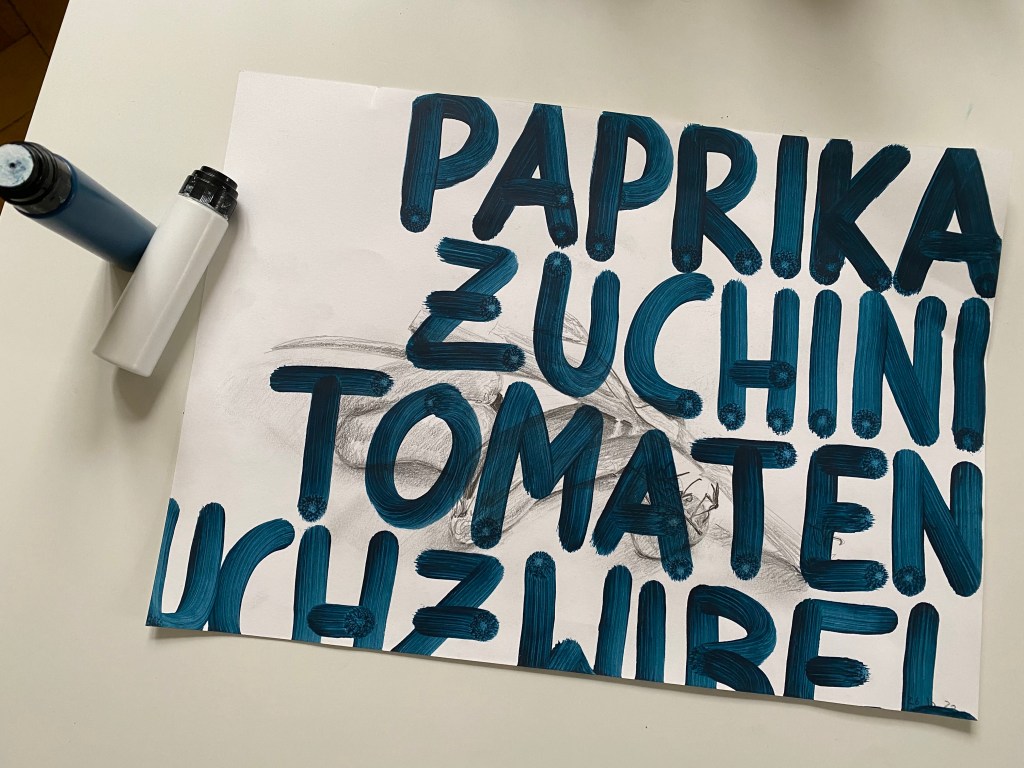 PAPRIKA
ZUCHINI
TOMATEN
UCHZWIBEL